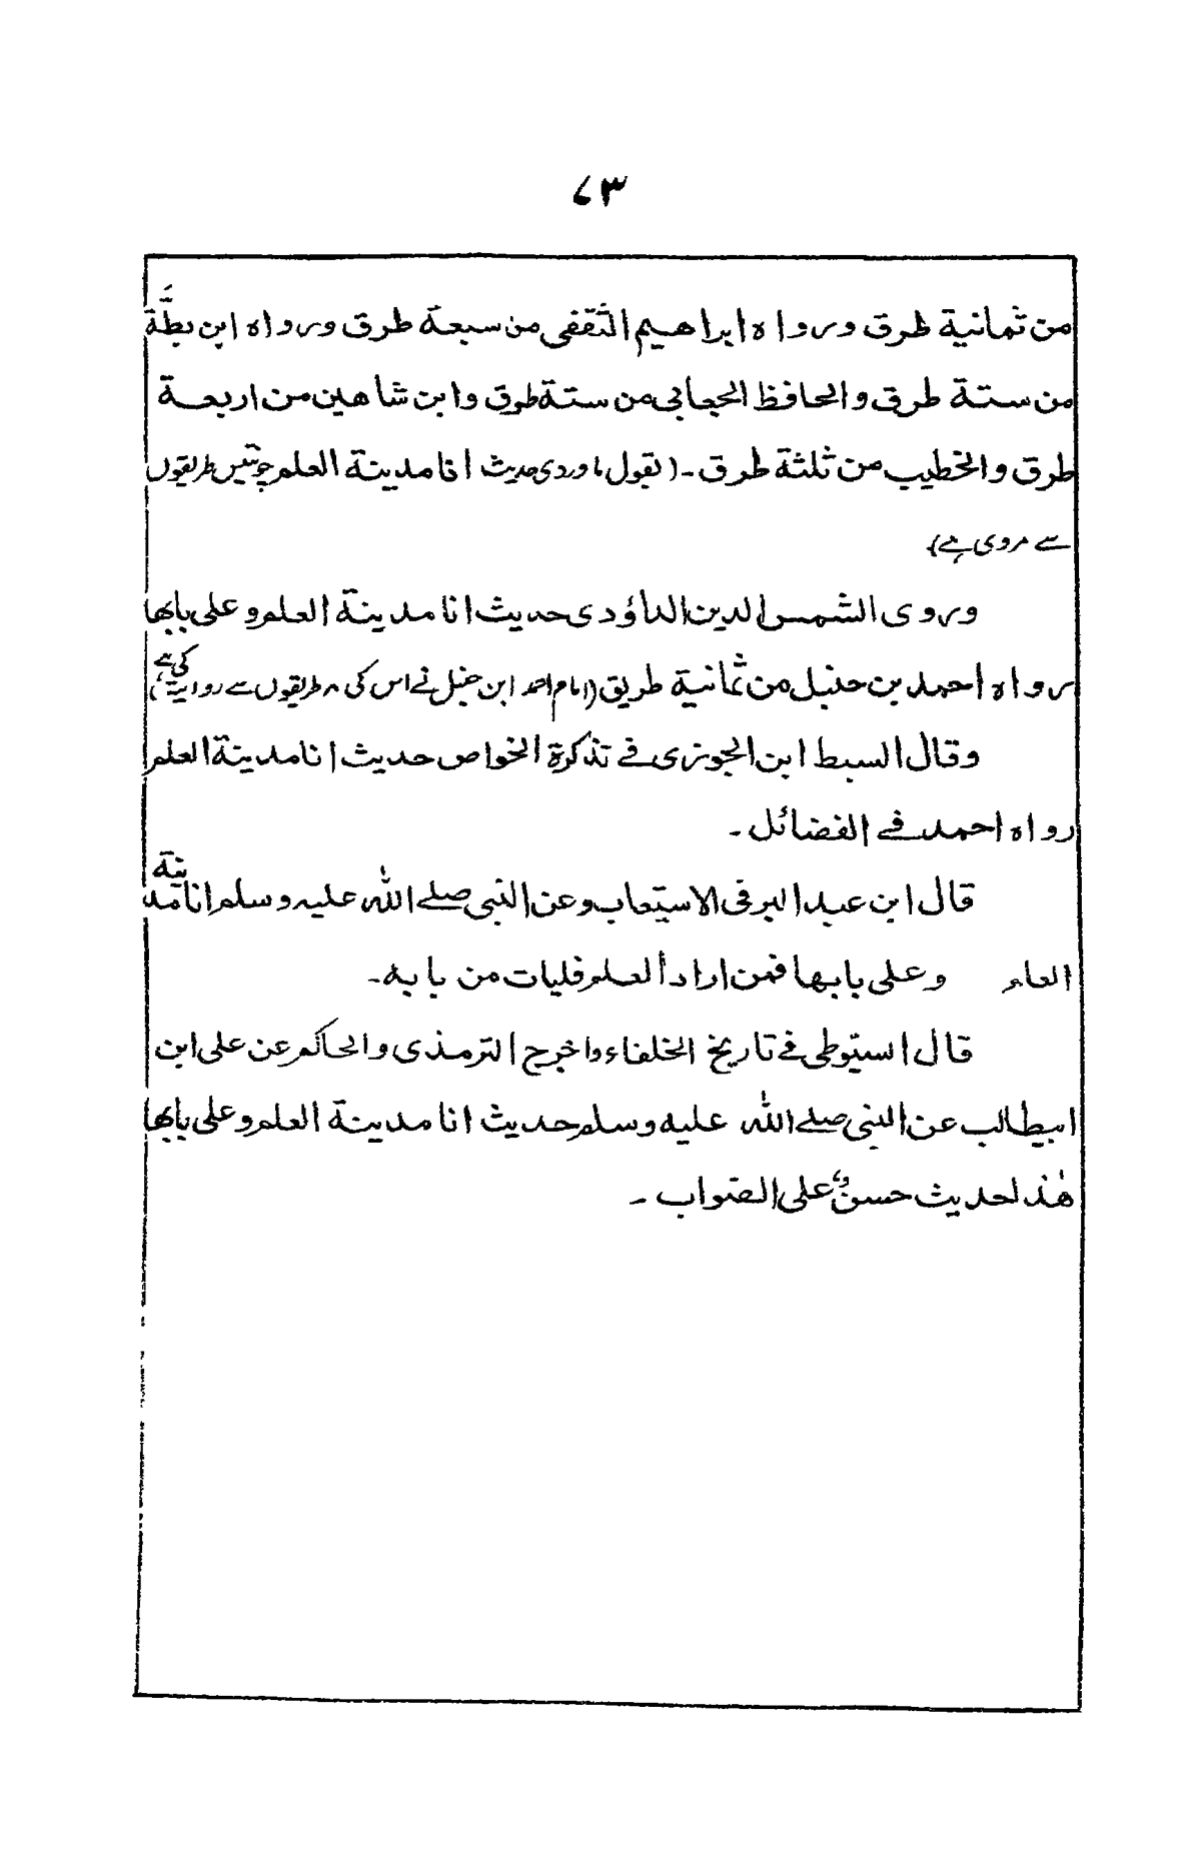 ۷۳
من ثمانية طرق ورواه ابراهيم الثقفى من سبعة طرق ورواه ابن بطَّة
من ستة طرق والحافظ الجعابى من ستة طرق وابن شاهين من اربعة
طرق والخطيب من ثلثة طرق۔ (بقول ماوردی حدیث انا مدينة العلم چونتیس طریقوں
سے مروی ہے)
وروى الشمس الدين الداؤدى حديث انا مدينة العلم وعلى بابها
رواه احمد بن حنبل من ثمانية طريق (امام احمد ابن حنبل نے اس کی ۸ طریقوں سے روایت کی ہے)
وقال السبط ابن الجوزى فے تذكرة الخواص حديث انا مدينة العلم
رواه احمد فے الفضائل۔
قال ابن عبد البر فى الاستيعاب وعن النبى صلے الله عليه وسلم انا مدينة
العلم وعلى بابها فمن اراد العلم فليات من بابه۔
قال السيّوطى فے تاريخ الخلفاء واخرج الترمذى والحاكم عن على ابن
ابيطالب عن النبى صلے الله عليه وسلم حديث انا مدينة العلم وعلى بابها
هٰذا لحديث حسن وعلى الصّواب ۔